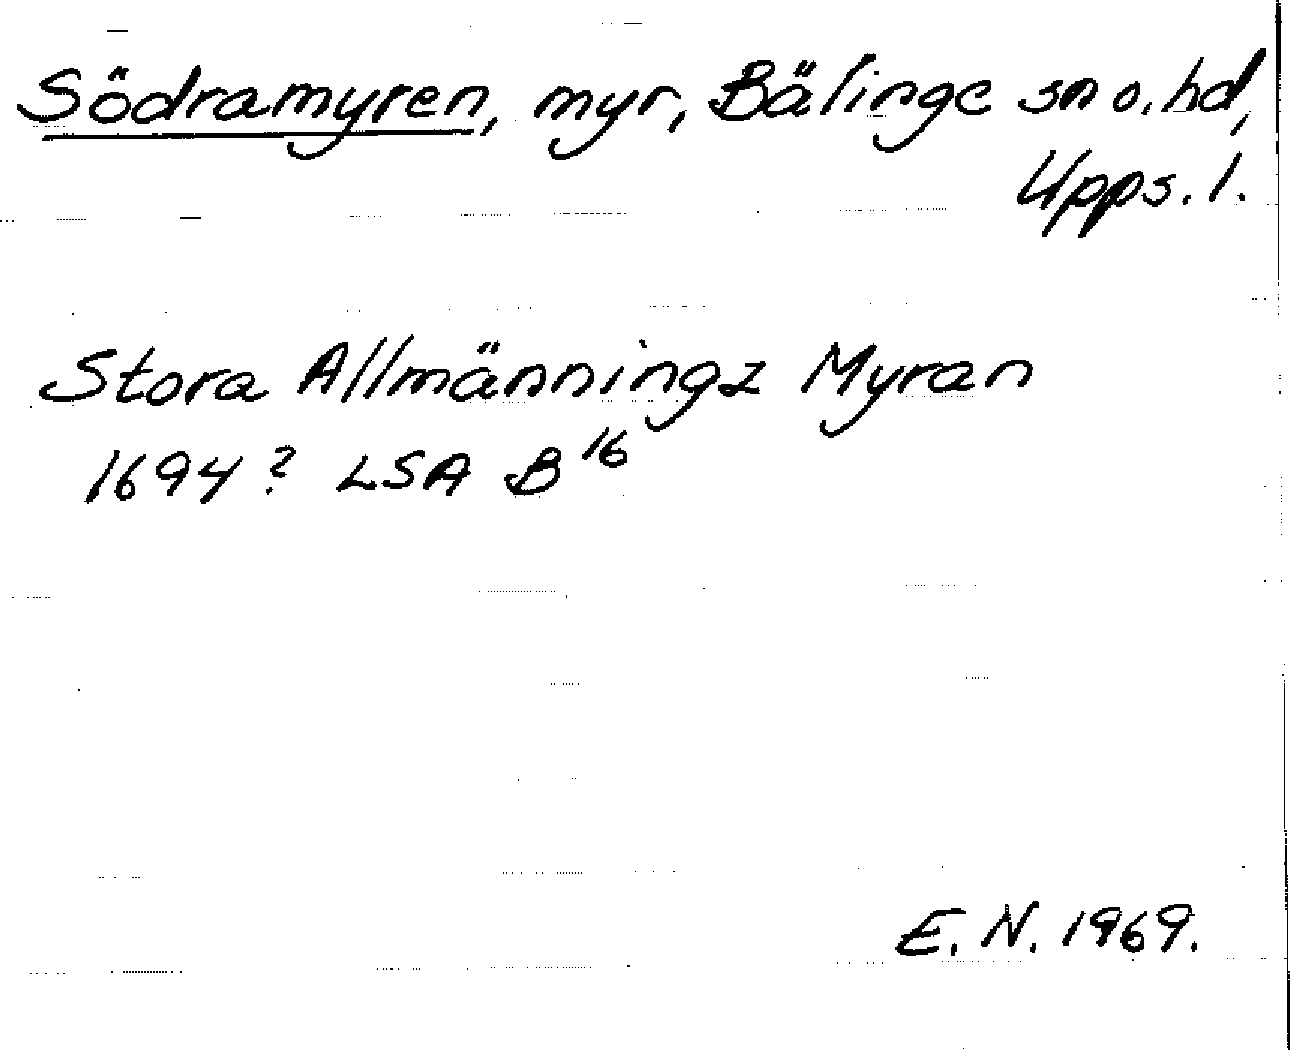 Södramyren, myr, Bälinge sn o. hd,
Upps. l.
Stora Allmänningz Myran
1694? LSA B 16
E. N. 1969.